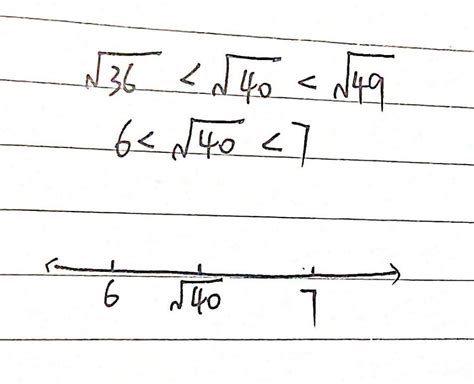 √36 < √40 < √49
6 < √40 < 7
6 √40 7